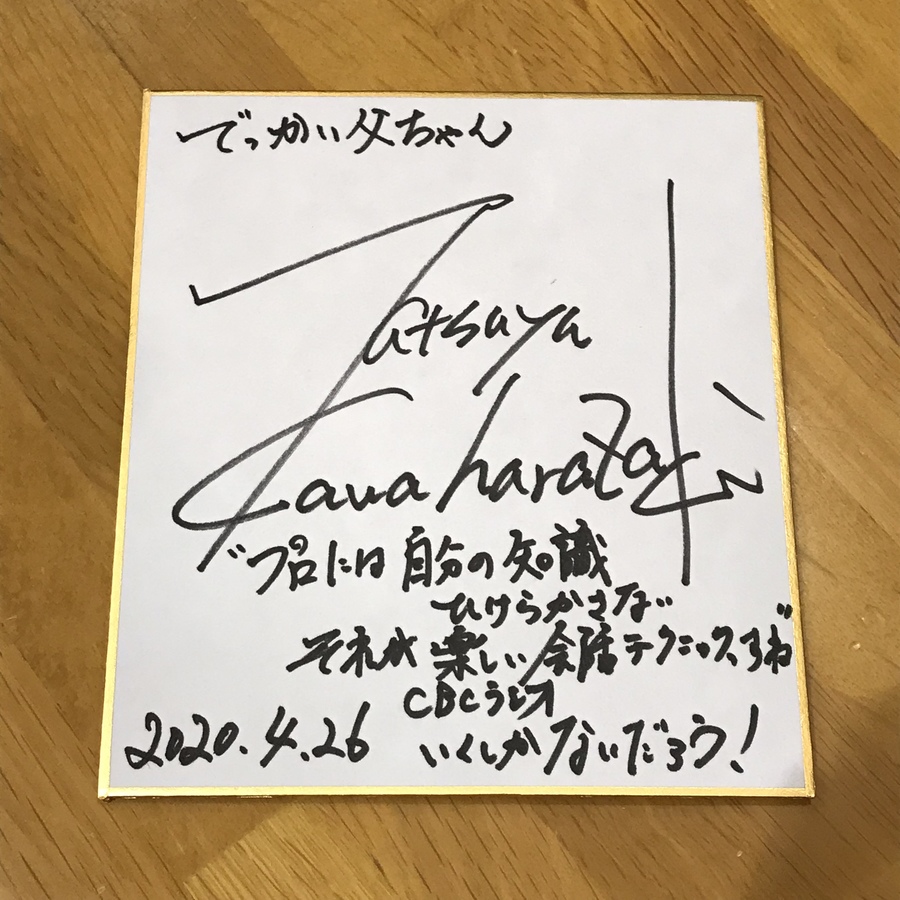 でっかい父ちゃん
Tatsuya
Kawaharazaki
"プロには自分の知識
ひけらかさない
それが楽しい会話テクニックすね"
CBCラジオ
2020.4.26 いくしかないだろう!